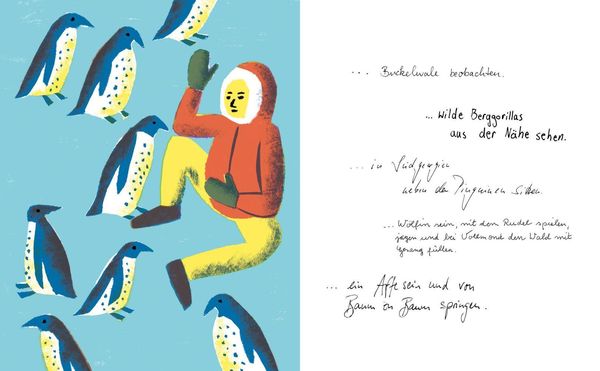 ... Buckelwale beobachten.
... Wilde Berggorillas
aus der Nähe sehen.
... in Südgeorgien
neben den Pinguinen sitzen.
... Wölfin sein, mit dem Rudel spielen,
jagen und bei Vollmond den Wald mit
Gesang füllen.
... ein Affe sein und von
Baum zu Baum springen.